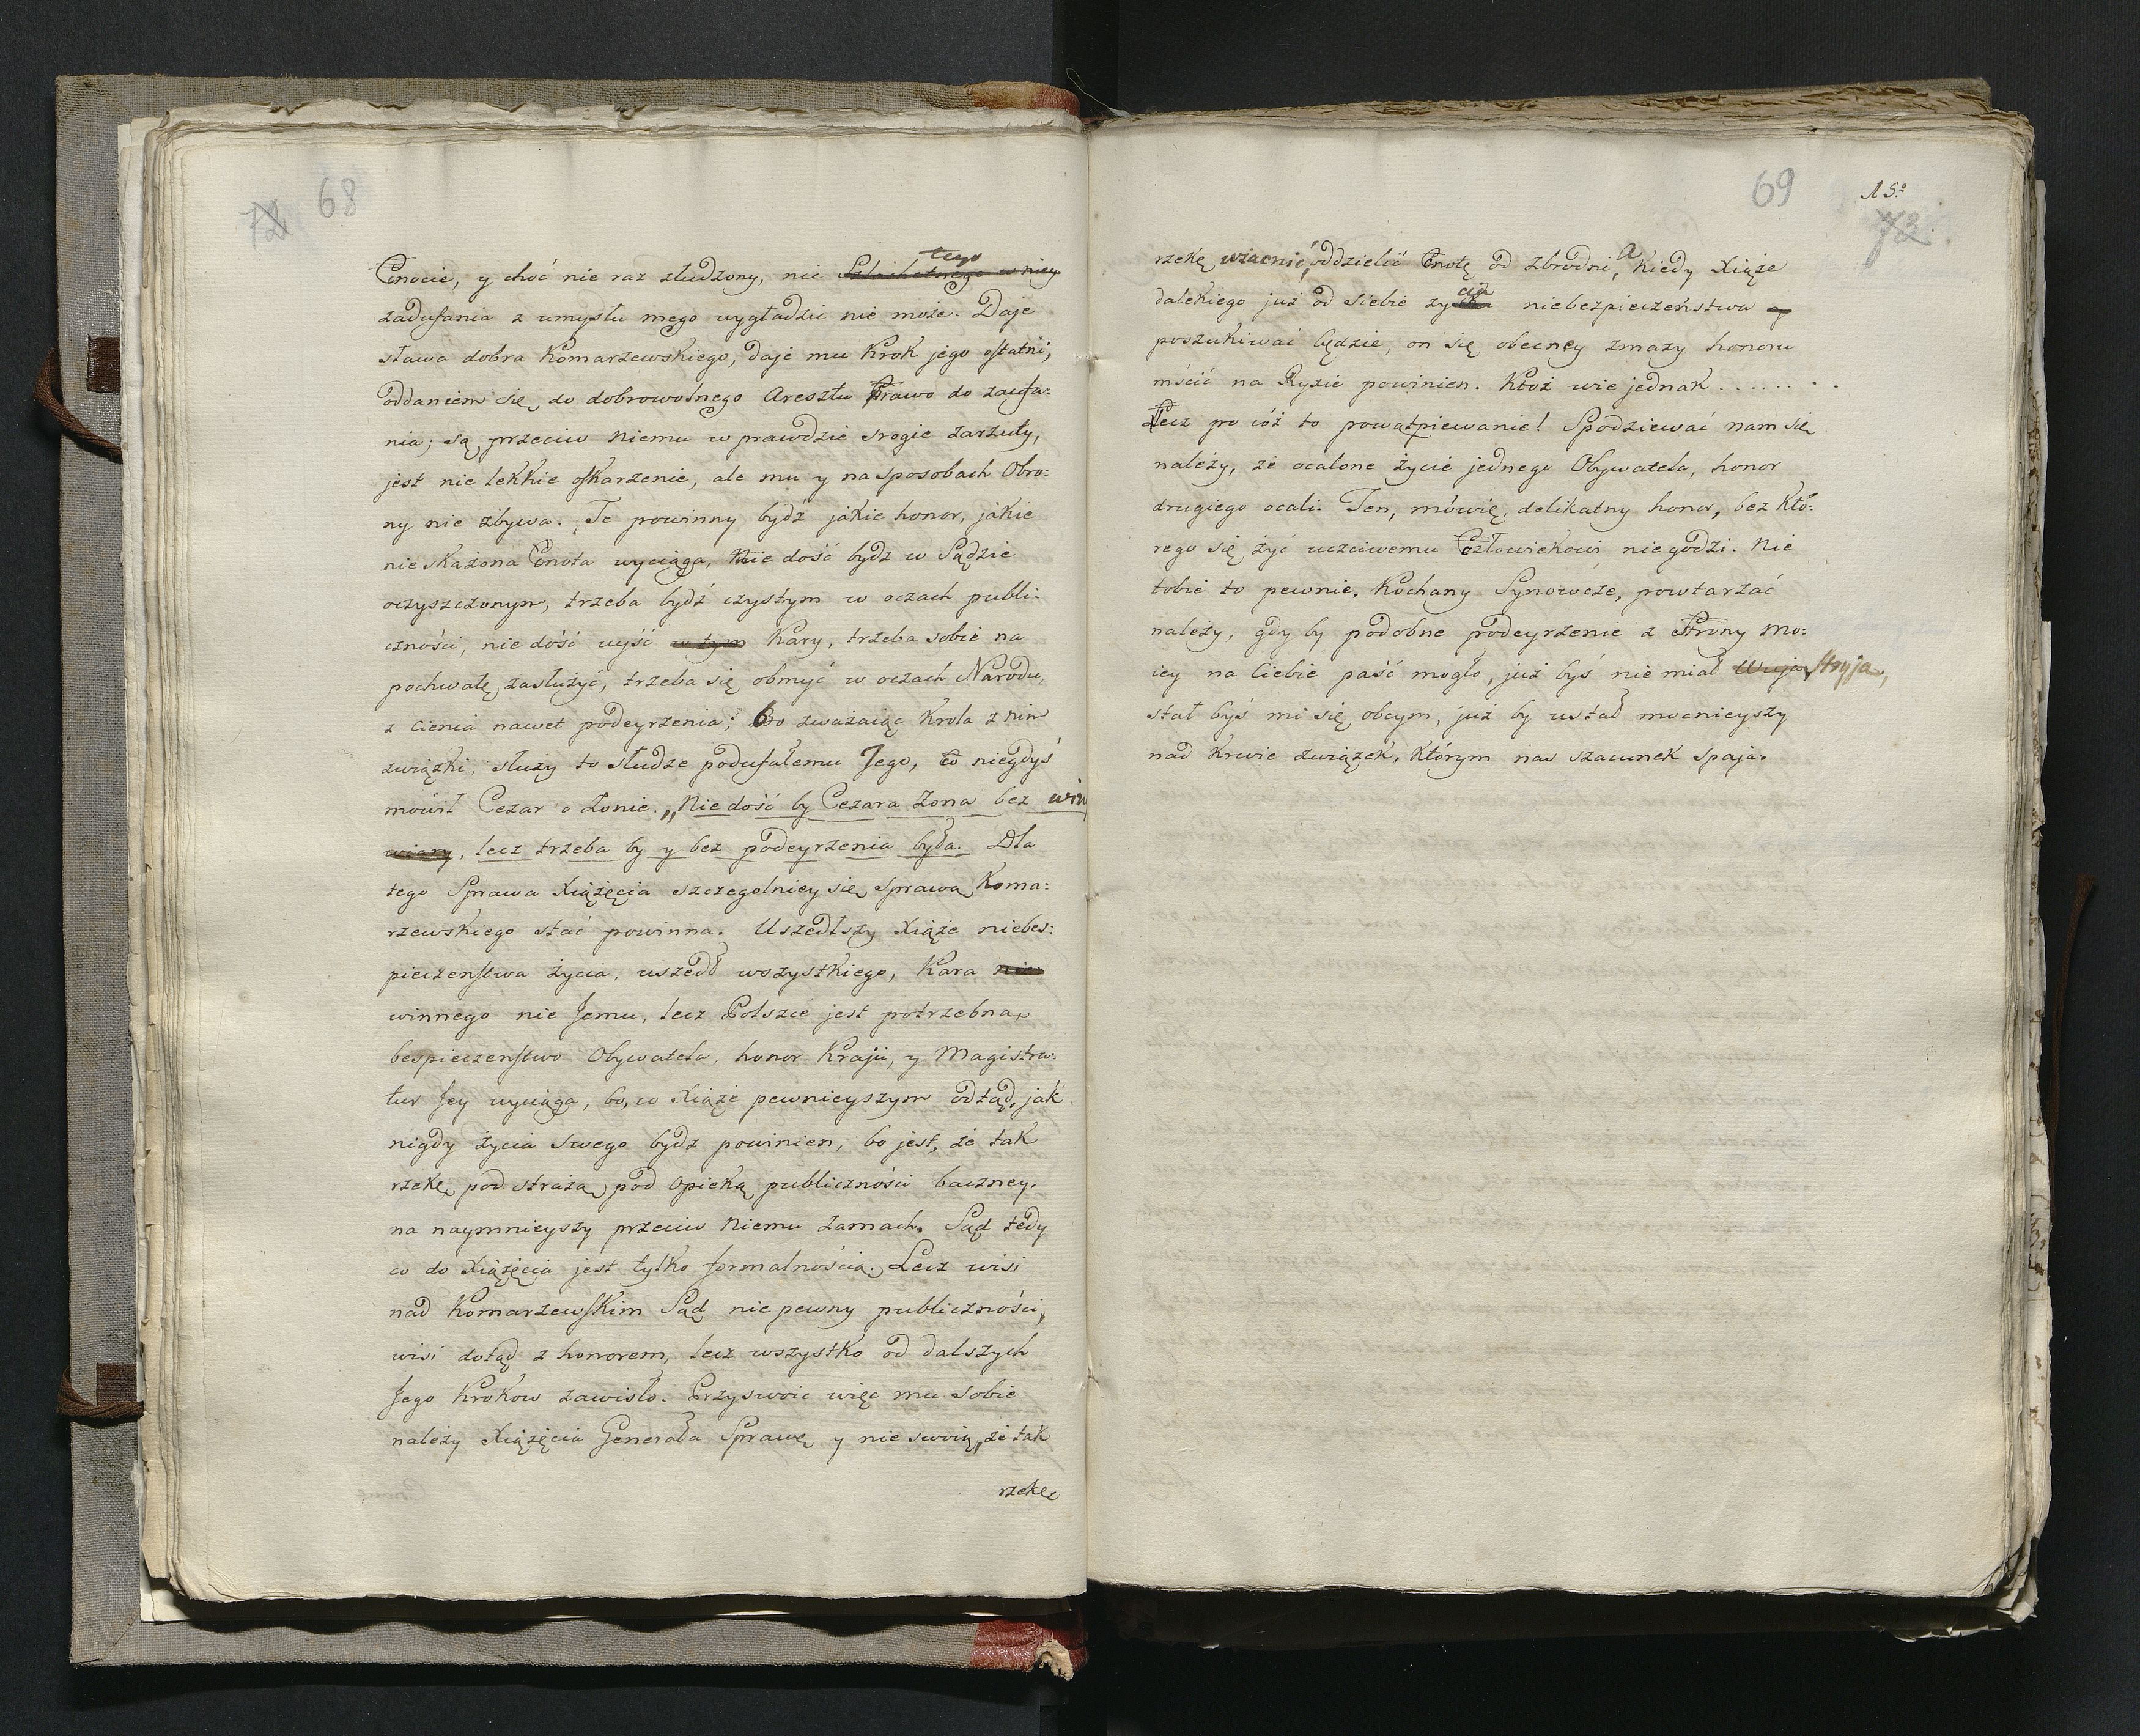 72 68
Cnocie, y choć nie raz złudzony, nic Szlachetnego w niey
tego
zadufania z umysłu mego wygładzić nie może. Daje
sława dobra Komarzewskiego, daje mu Krok jego ostatni,
oddaniem się do dobrowolnego Aresztu Prawo do zaufa:
nia; są przeciw Niemu w prawdzie srogie zarzuty,
jest nie lekkie oskarzenie, ale mu y na sposobach Obro:
ny nie zbywa. Te powinny bydź jakie honor, jakie
nie skażona Cnota wyciąga, Nie dość bydz w Sądzie
oczyszczonym, trzeba bydź czystym w oczach publi:
czności, nie dość uyść w tym Kary, trzeba sobie na
pochwałę zasłużyć, trzeba się obmyć w oczach Narodu,
z cienia nawet podeyrzenia; bo zważaiąc Krola z nim
związki, służy to słudze podufałemu Jego, co niegdyś
mówił Cezar o Żonie. „Nie dość by Cezara Żona bez win
wiary, lecz trzeba by y bez podeyrzenia była. Dla
tego Sprawa Xiążęcia szczegolniey się sprawą Koma:
rzewskiego stać powinna. Uszedłszy Xiąże niebes:
pieczenstwa życia, uszedł wszystkiego, Kara nie
winnego nie Jemu, lecz Polszcze jest potrzebna,
bespieczenstwo Obywatela, honor Kraju, y Magistra:
tur Jey wyciąga, bo, co Xiąże pewnieyszym odtąd, jak
nigdy życia swego bydz powinien, bo jest, że tak
rzekę pod strażą, pod opieką publiczności baczney.
na naymnieyszy przeciw Niemu zamach. Sąd tedy
co do Xiążęcia jest tylko formalnością. Lecz wisi
nad Komarzewskim Sąd nie pewny publiczności,
wisi dotąd z honorem, lecz wszystko od dalszych
Jego Krokow zawisło. Przyswoić więc mu sobie
należy Xiążęcia Generała Sprawę y nie swoię, że tak
rzekę
69 15º
73.
rzekę wzacnić, oddzielić Cnotę od zbrodni, A Kiedy Xiąże
cia
dalekiego już od siebie zycia niebezpieczeństwa y
poszukiwać będzie, on się obecney zmazy honoru
mścić na Ryxie powinien. Ktoż wie jednak . . . . . . . .
Lecz po cóż to powątpiewanie! Spodziewać nam się
należy, że ocalone życie jednego Obywatela, honor
drugiego ocali. Ten, mówię, delikatny honor, bez któ:
rego się żyć uczciwemu Człowiekowi nie godzi. Nie
tobie to pewnie, Kochany Synowcze, powtarzać
należy, gdy by podobne podeyrzenie z Strony mo:
iey na Ciebie paść mogło, już byś nie miał Wuja Stryja,
stał byś mi się obcym, już by ustał mocnieyszy
nad Krwie związek, którym nas szacunek spaja.